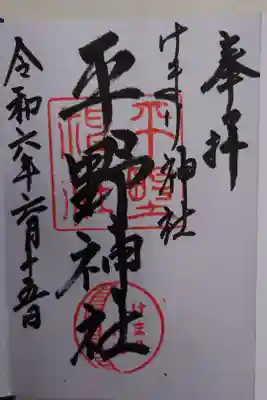 奉拝
けまり神社
平野神社
令和六年六月十五日